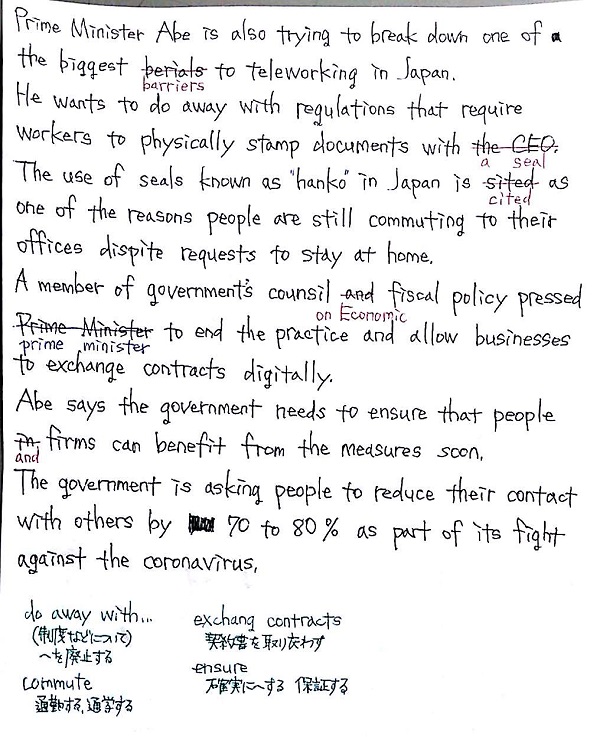 Prime Minister Abe is also trying to break down one of
the biggest berials to teleworking in Japan.
barriers
He wants to do away with regulations that require
workers to physically stamp documents with the CEO.
a seal
The use of seals known as "hanko" in Japan is sited as
cited
one of the reasons people are still commuting to their
offices dispite requests to stay at home.
A member of government's counsil and fiscal policy pressed
on Economic
Prime Minister to end the practice and allow businesses
prime minister
to exchange contracts digitally.
Abe says the government needs to ensure that people
in firms can benefit from the measures soon.
and
The government is asking people to reduce their contact
with others by 70 to 80% as part of its fight
against the coronavirus.
do away with...
(制度などについて)
〜を廃止する
commute
通勤する,通学する
exchang contracts
契約書を取り交わす
ensure
確実に〜する 保証する